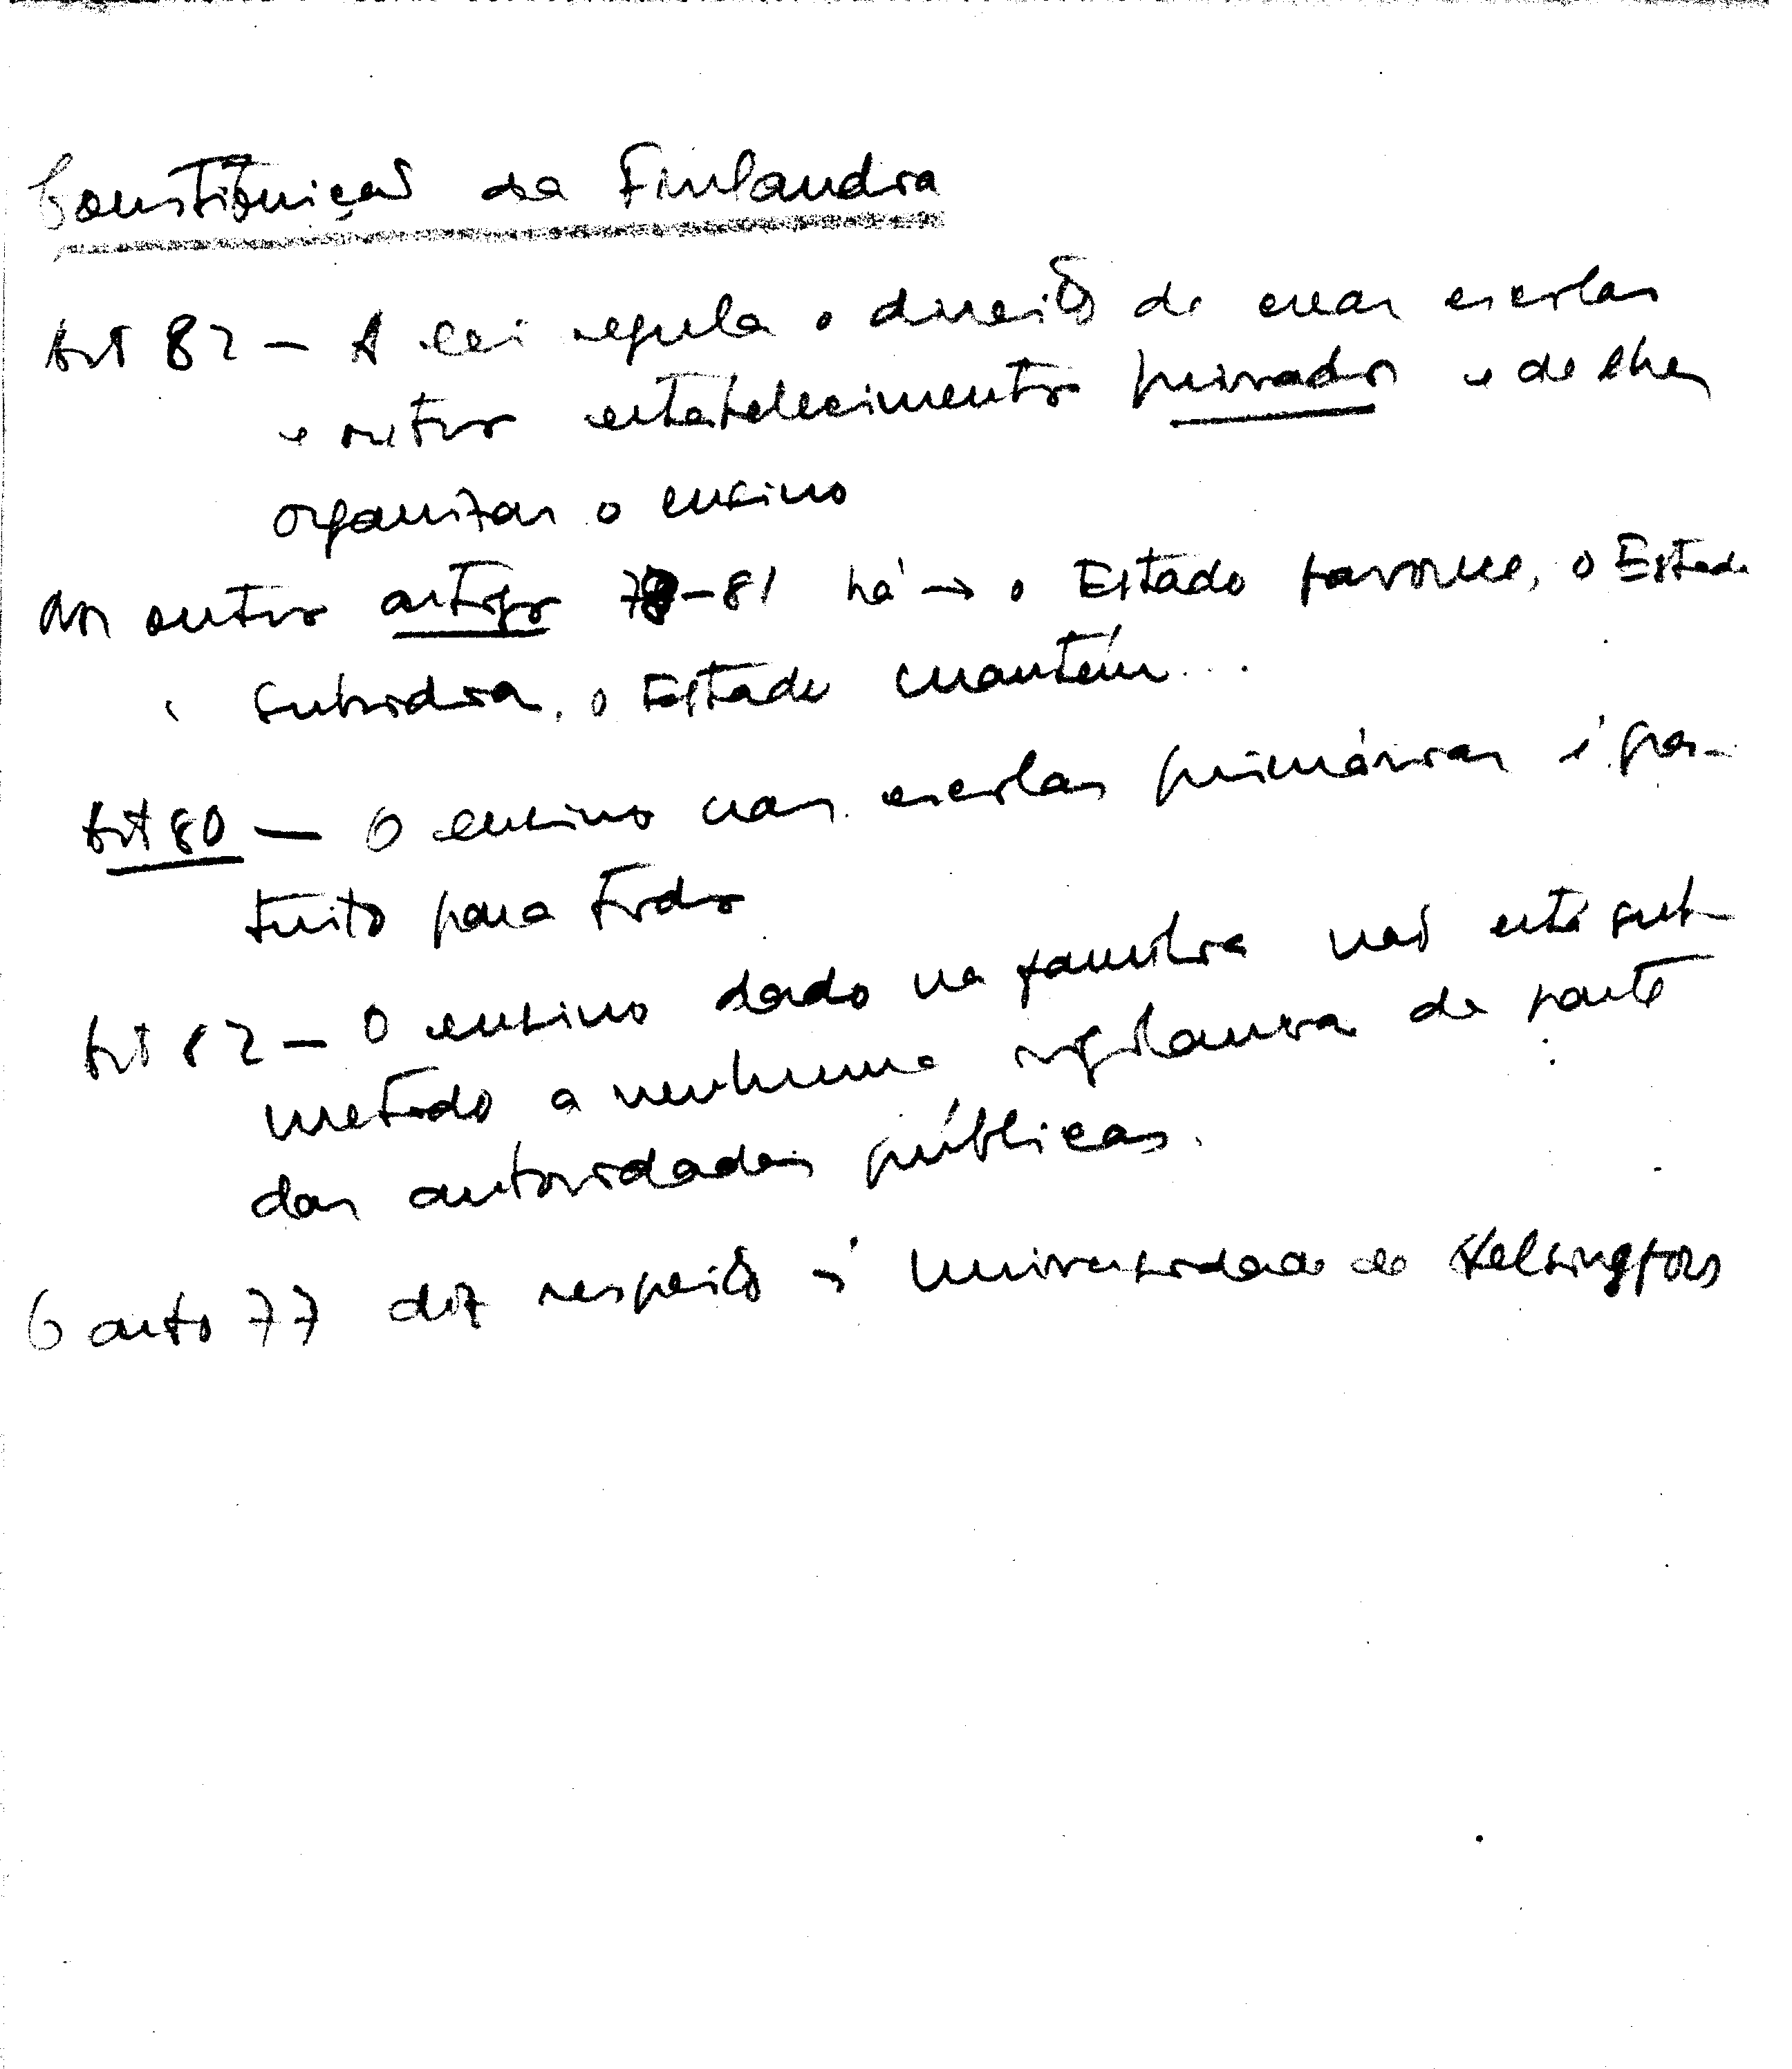 Constituição da Finlandia
Art 82 - A lei regula o direito de criar escolas
e outros estabelecimentos privados e de lhes
organizar o ensino
Nos outros artigos 78-81 há → o Estado favorece, o Estado
subsidia, o Estado mantém...
Art 80 — O ensino nas escolas primárias é gra-
tuito para todos
Art 82 — O ensino dado na família não está sub-
metido a nenhuma vigilancia de parte
das autoridades públicas.
O arto 77 diz respeito à Universidade de Helsingfors